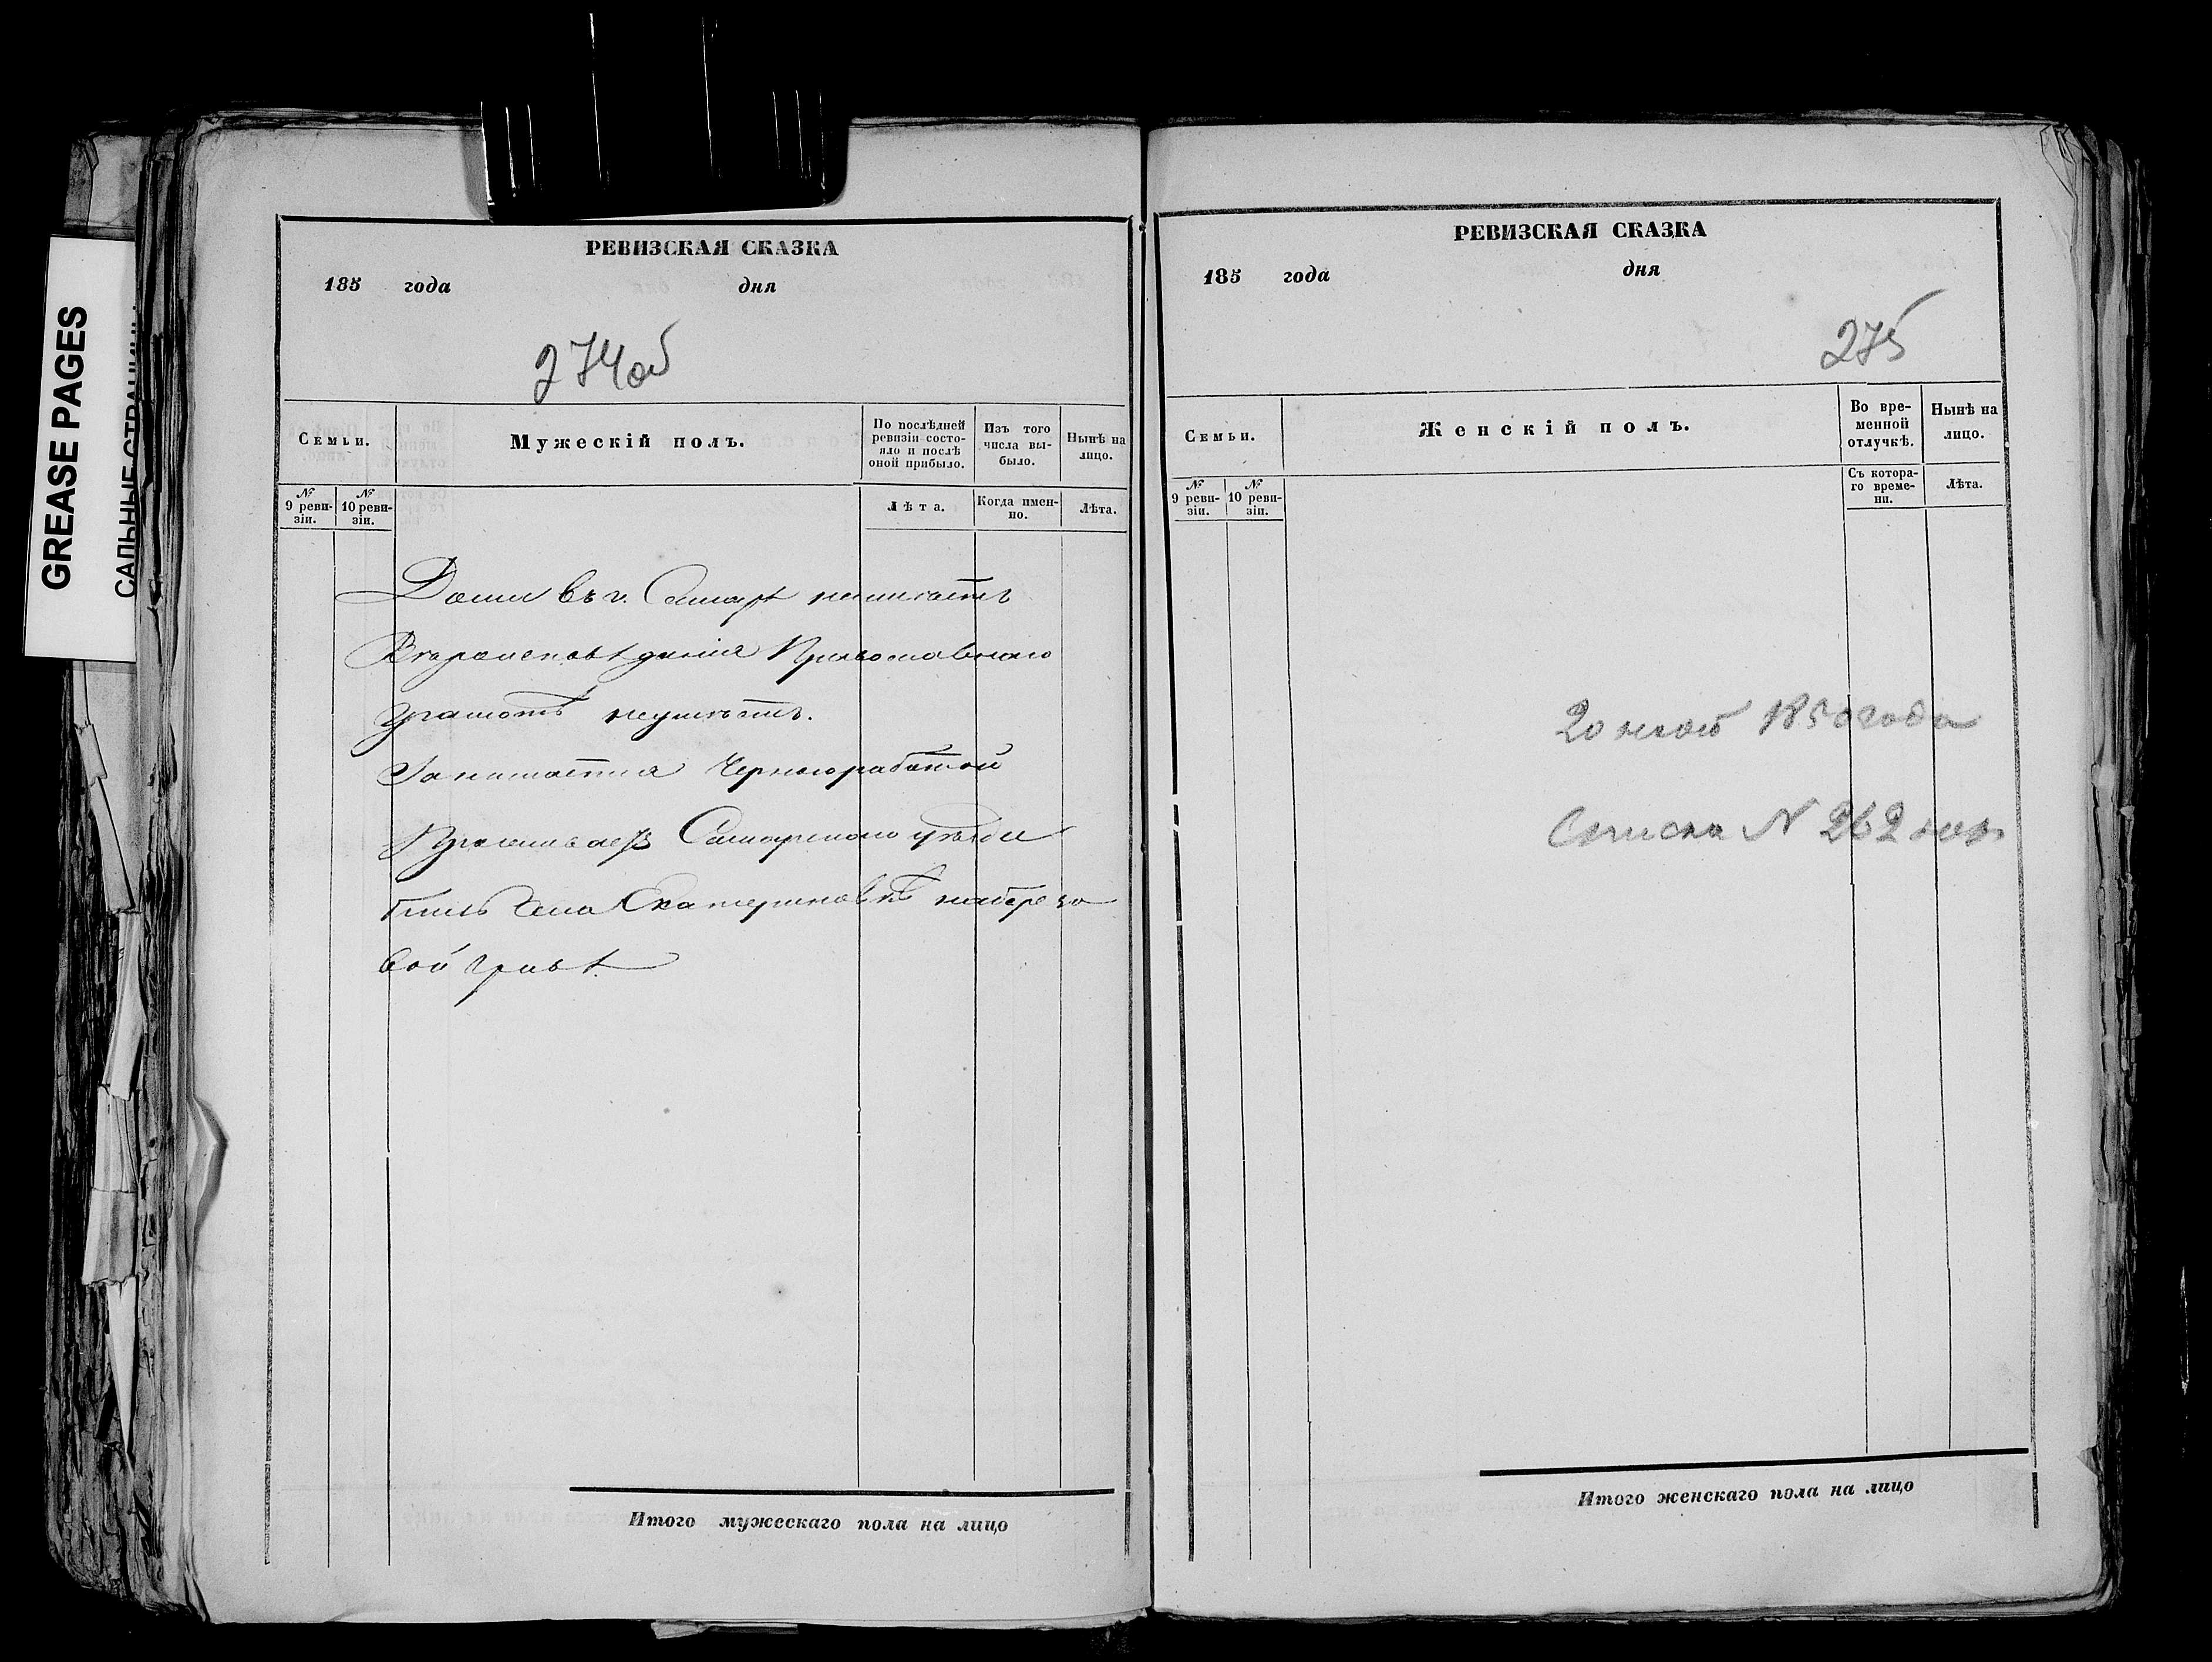 GREASE PAGES
САЛЬНЫЕ СТРАНИЦЫ
РЕВИЗСКАЯ СКАЗКА
185 года дня
274об
Семьи.
Мужескій полъ.
По послѣдней ревизіи состояло и послѣ оной прибыло.
Изъ того числа выбыло.
Нынѣ на лицо.
№ 9 ревизіи.
№ 10 ревизіи.
Лѣта.
Когда именно.
Лѣта.
Дома въ г. Самарѣ неимѣетъ
Вѣроисповѣданія Православнаго
Грамотѣ неумѣетъ.
Занимается Чернорабатой
Проживаетъ Самарскаго уѣзда
близь Села Екатериновкѣ набере зо
вой гривѣ.
Итого мужескаго пола на лицо
РЕВИЗСКАЯ СКАЗКА
185 года дня
275
Семьи.
Женскій полъ.
Во временной отлучкѣ.
Нынѣ на лицо.
№ 9 ревизіи.
№ 10 ревизіи.
Съ котораго времени.
Лѣта.
20 1850 года
Списка N 262
Итого женскаго пола на лицо